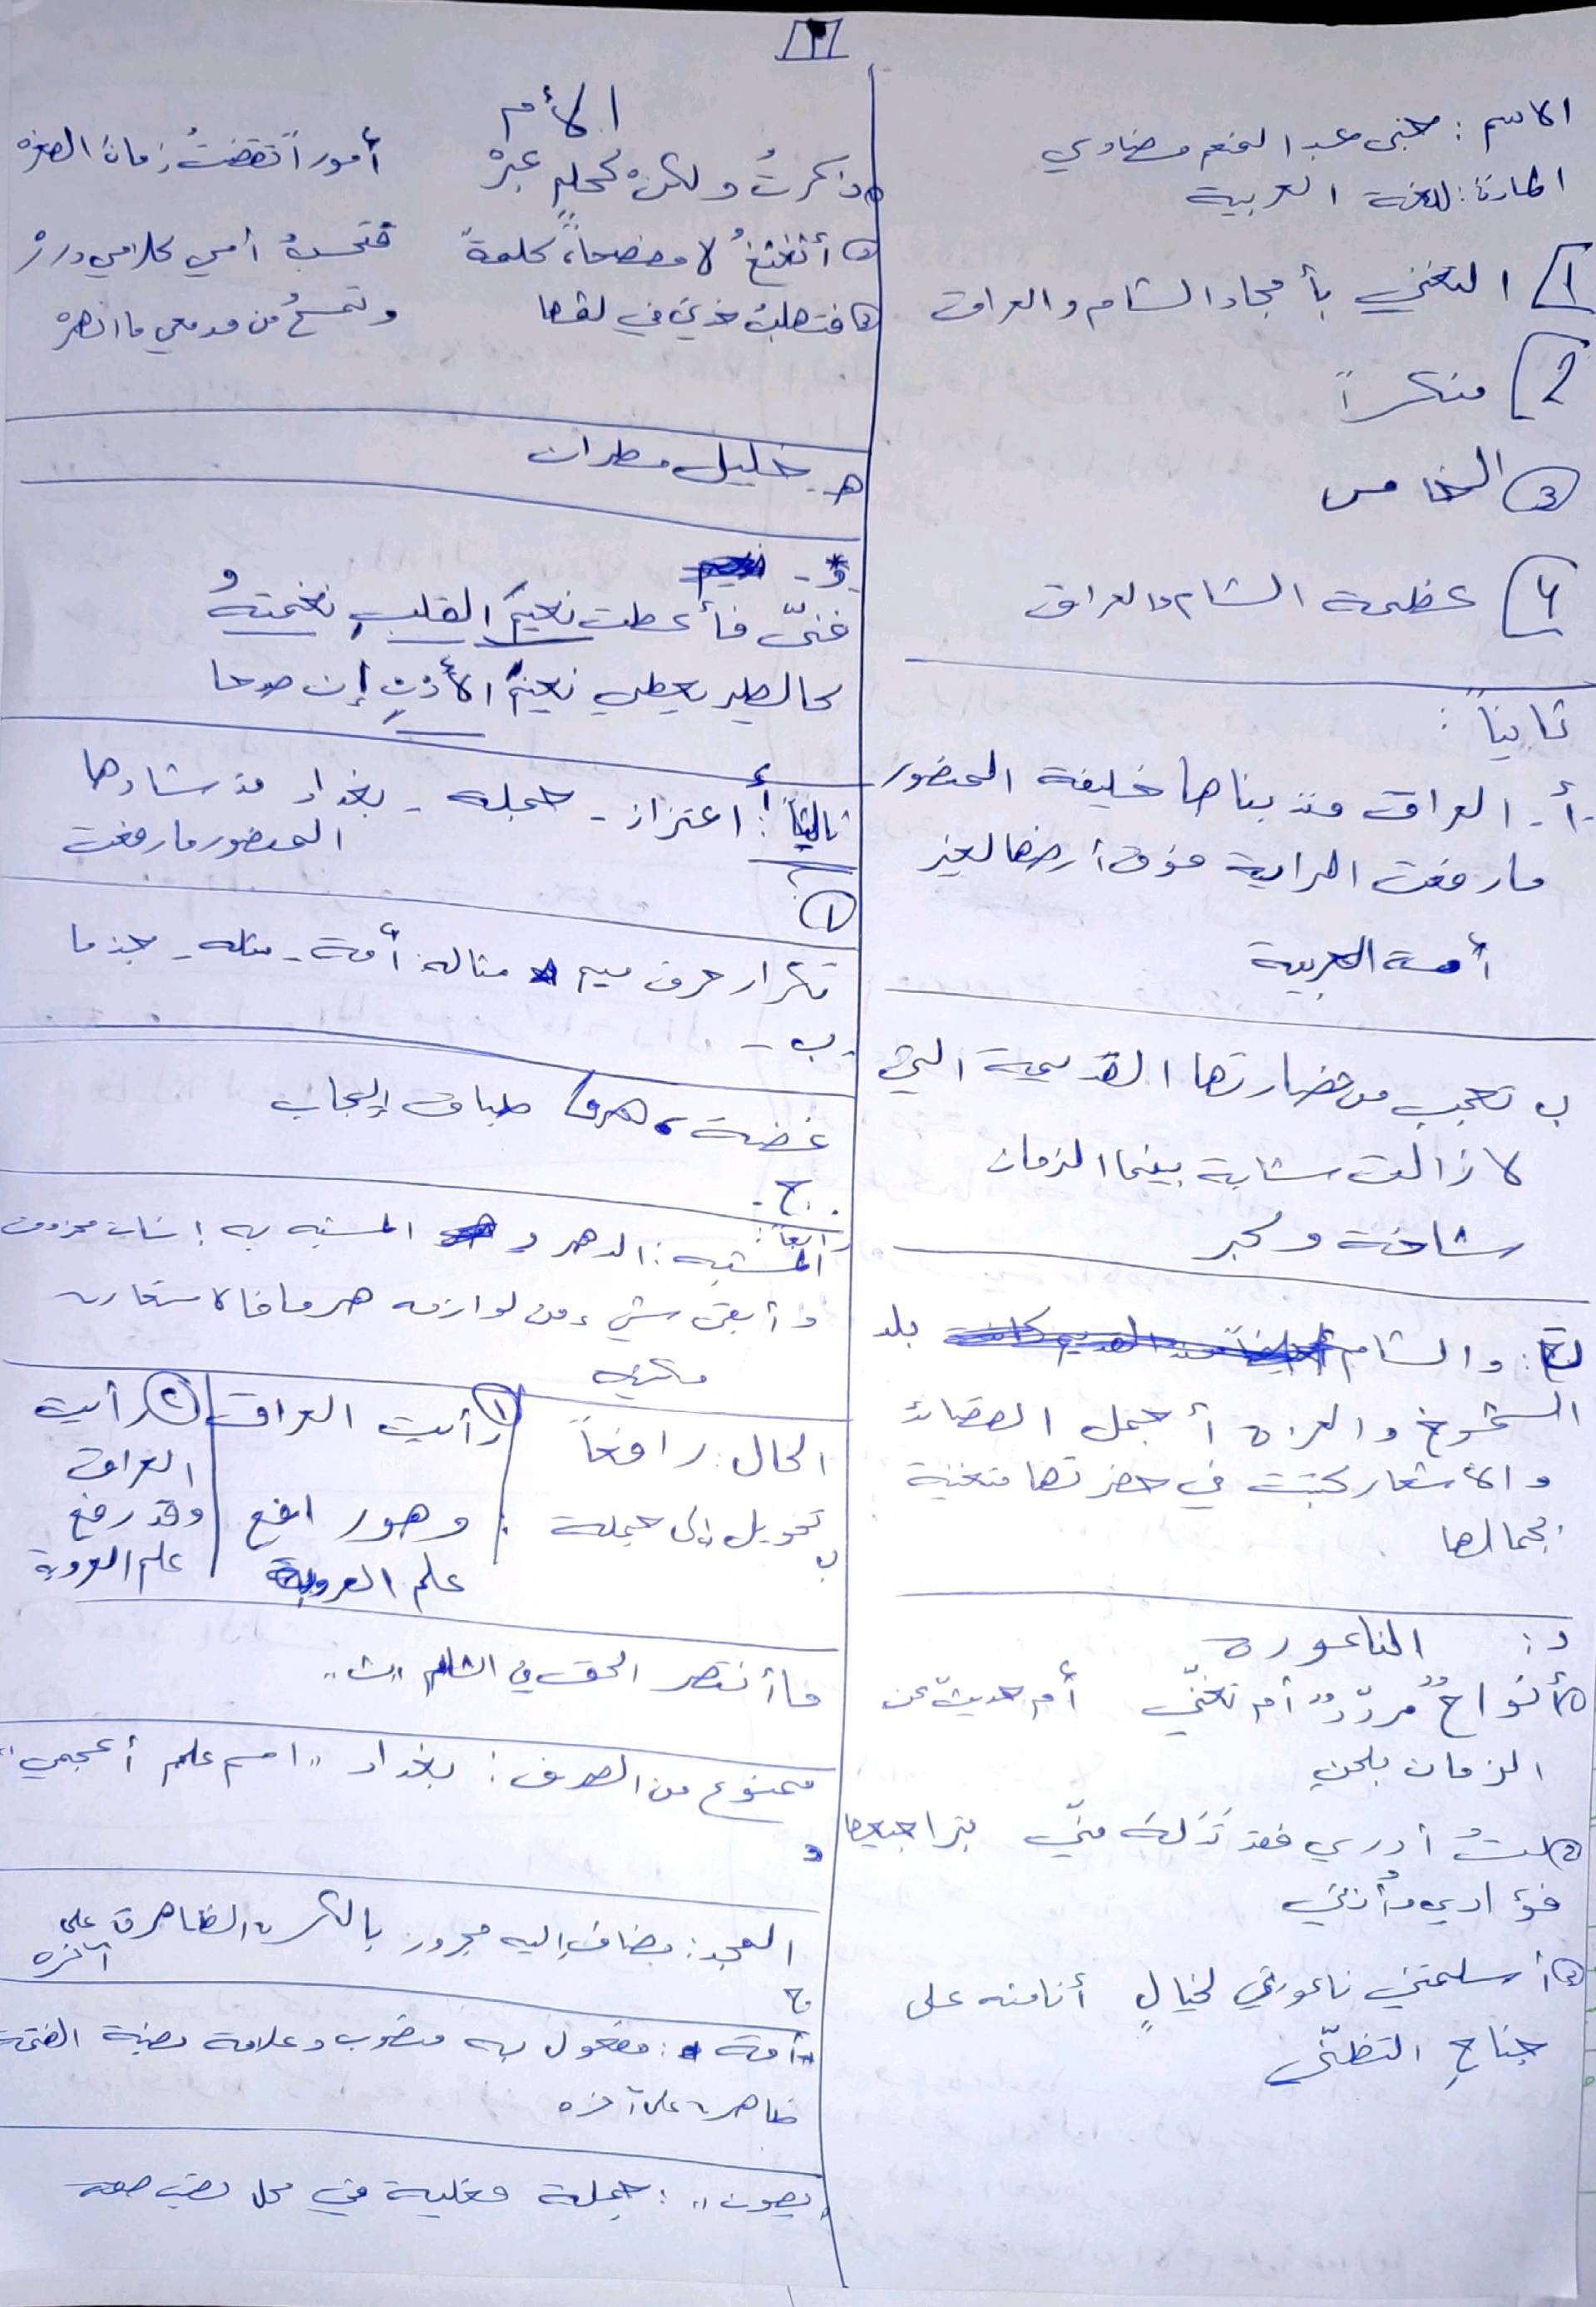 ١
الاسم: عبد المنعم
المادة: اللغة العربية
1 التغني بأمجاد الشام والعراق
2 منكراً
3 الخامس
4 عظمة الشام والعراق
ثانياً:
أ- العراق منذ بناها خليفة المنصور
ما رفعت الراية فوق أرضها لغير
أمة العربية
ب تعجب من حضارتها القديمة التي
لا زالت شابة بينما الزمان
شاخ وكبر
والشام بلد
الشموخ والعزة أجمل القصائد
والأشعار كتبت في حضرتها متغنية
بجمالها
د: الناعورة
1 أنواحٌ مردّدٌ أم تغنّي أم حديثٌ عن
الزمان بلحن
2 لستُ أدري فقد منّي
فؤادي وأذني
3 أسلمتني ناعورتي لخيالٍ أنا منه على
جناحِ التظنّي
الأم
1 ذكرتُ ولكن كحلمٍ عبرْ أموراً تقضتْ زمان الصغرْ
2 أتغتغُ لا مفصحاً، كلمةً فتحسبُ أمي كلامي دررْ
3 خدي في لثمها وتمسحُ من مدمعي ما انهمرْ
هـ- خليل مطران
و-
غنّى فأعطت نعيمَ القلبِ نغمتهُ
كالطير يعطي نعيمَ الأذنِ إن صدحا
ثالثاً: أ اعتزاز - جملة - بغداد مذ شادها
المنصور ما رفعت
١
تكرار حرف ميم مثاله أمة - مثله -
ب -
غضة، هرما طباق إيجاب
ج -
رابعاً:
المشبه: الدهر و المشبه به إنسان محذوف
وأبقى شيء من لوازمه هرما فالاستعارة
مكنية
الحال: رافعاً
تحويل إلى جملة:
١ رأيت العراق
وهو رافع
علم العروبة
٢ رأيت
العراق
وقد رفع
علم العروبة
ب
ما أنتصر الحق في الشام "ت"
ممنوع من الصرف: بغداد "اسم علم أعجمي"
د
المجد: مضاف إليه مجرور بالكسرة الظاهرة على
آخره
ج
"أمة": مفعول به منصوب وعلامة نصبه الفتحة
ظاهرة على آخره
"يصون": جملة فعلية في محل نصب صفة